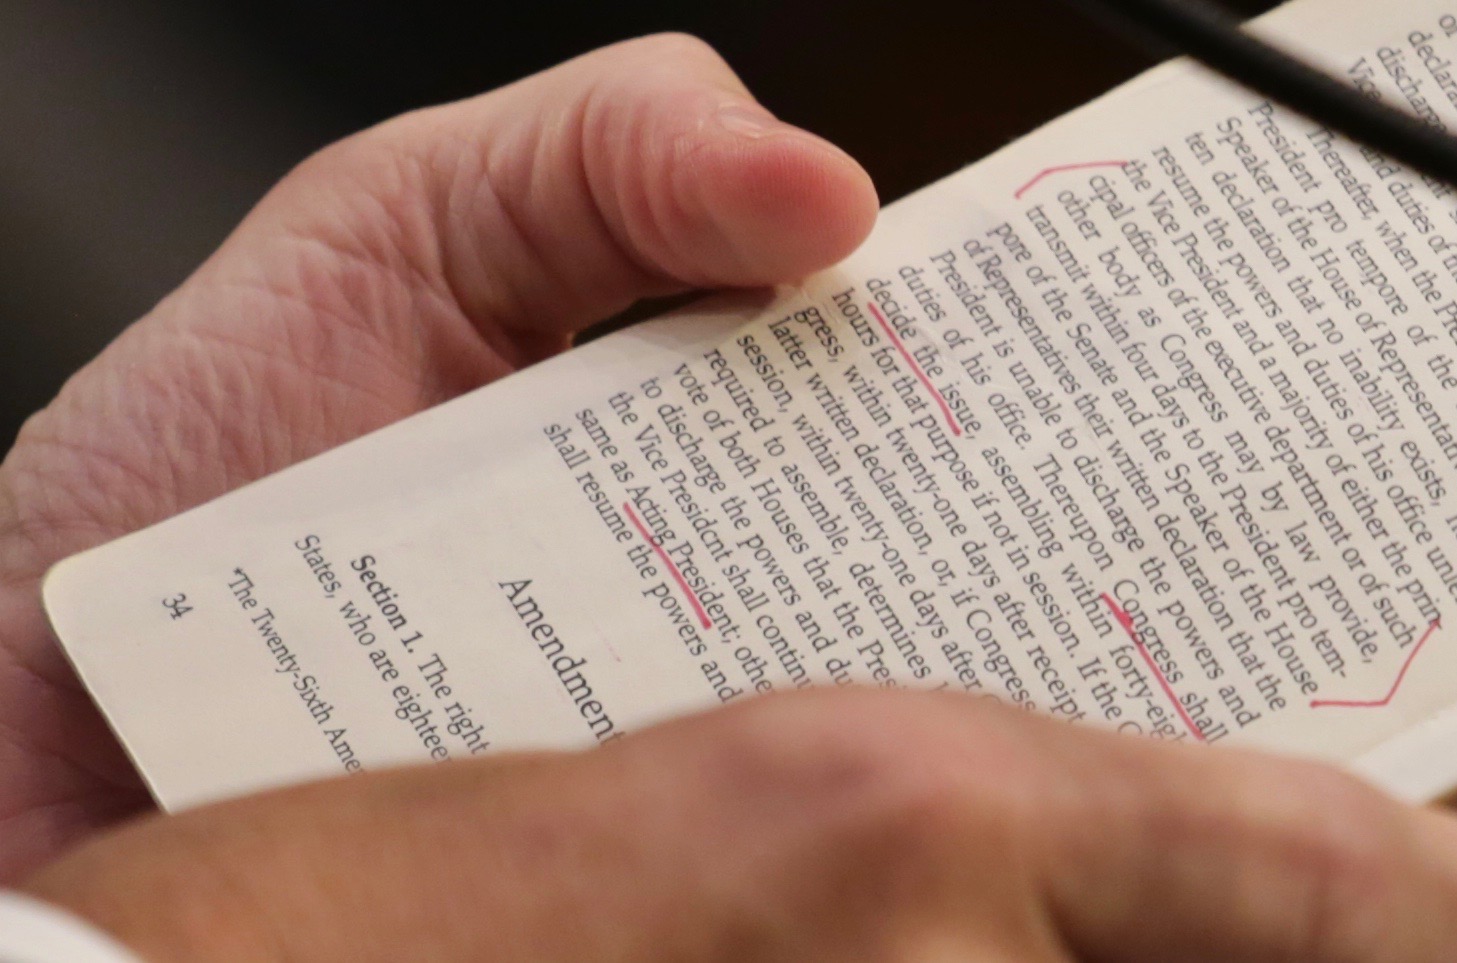 Vice
and duties of
Thereafter, when the
President pro tempore of the
Speaker of the House of
ten declaration that no inability exists,
resume the powers and duties of his office
the Vice President and a majority of either the prin
cipal officers of the executive department or of such
other body as Congress may by law provide,
transmit within four days to the President pro tem-
pore of the Senate and the Speaker of the House
of Representatives their written declaration that the
President is unable to discharge the powers and
duties of his office. Thereupon Congress shall
decide the issue, assembling within
hours for that purpose if not in session. If the
gress, within twenty-one days after receipt
latter written declaration, or, if Congress
session, within twenty-one days after
required to assemble, determines
vote of both Houses that the
to discharge the powers and
the Vice President shall
same as Acting President;
shall resume the powers and
Amendment
Section 1. The right
States, who are
*The Twenty-Sixth
34